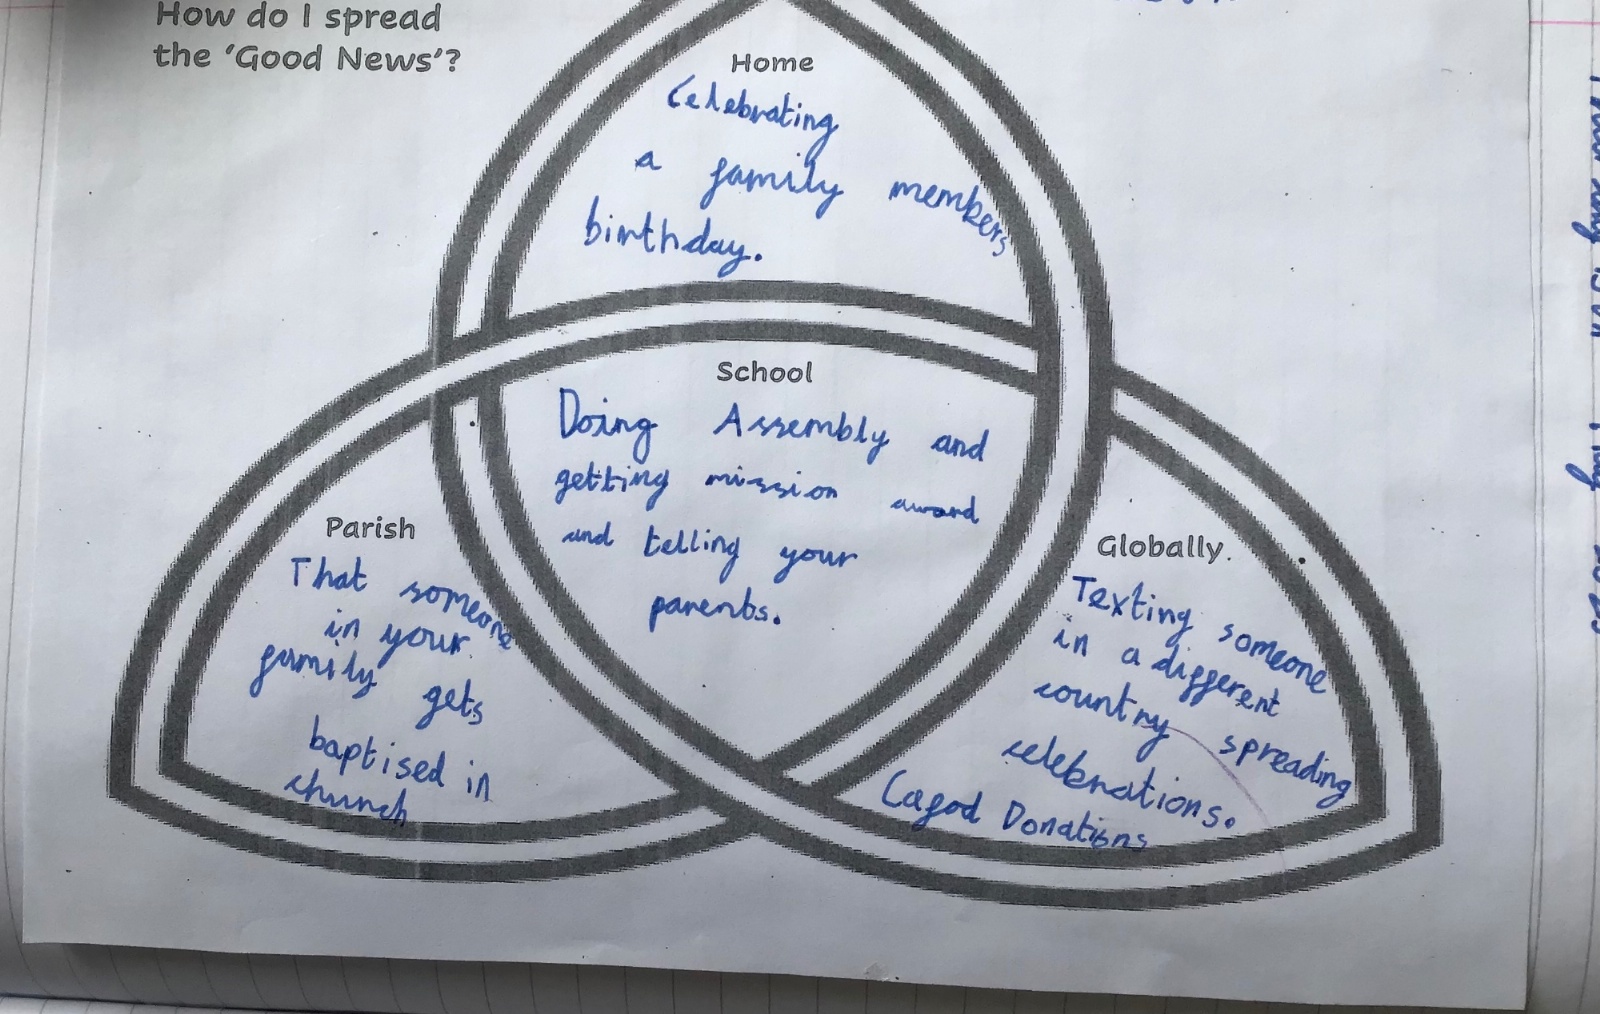 How do I spread
the 'Good News'?
Home
Celebrating
a family members
birthday.
School
Doing Assembly and
getting mission award
and telling your
parents.
Parish
That someone
in your
family gets
baptised in
church
Globally.
Texting someone
in a different
country spreading
celebrations.
Cafod Donations